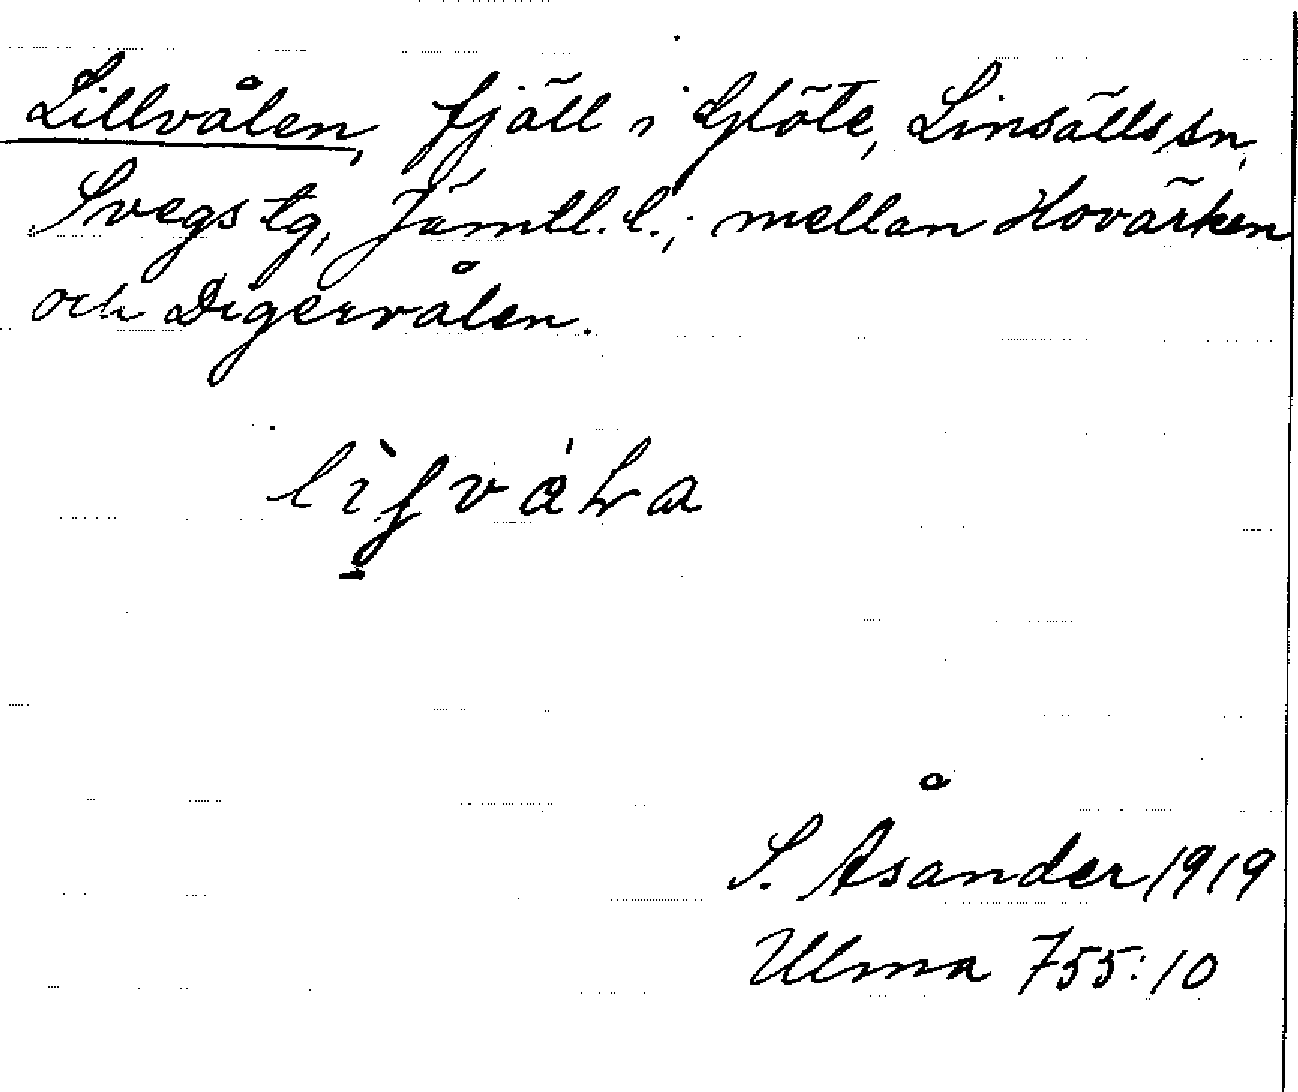 Lillvålen, fjäll i Glöte, Linsälls sn,
Svegs tg, Jämtl. l.; mellan Hovärken
och Digervålen.
S. Åsander 1919
Ulma 755:10